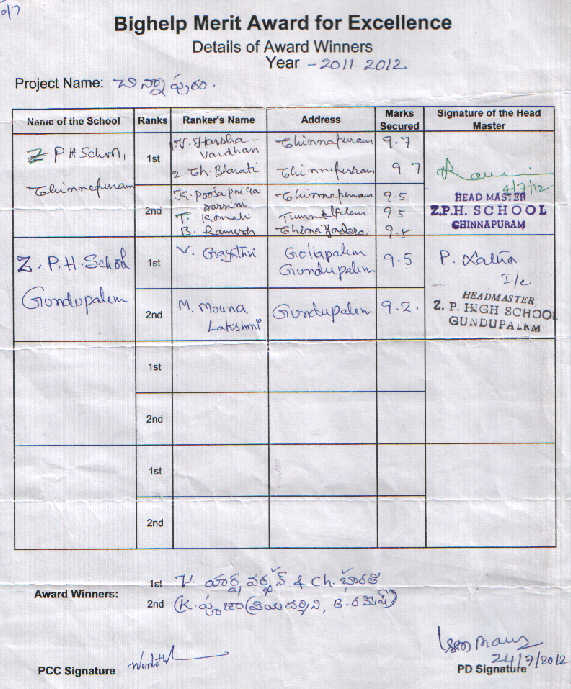 Bighelp Merit Award for Excellence
Details of Award Winners
Year - 2011 2012.
Project Name: చిన్నాపురం.
Name of the School Ranks Ranker's Name Address Marks Secured Signature of the Head Master
Z P H School, 1st 1. V. Harsha Vardhan Chinnapuram 9.7
Chinnapuram 2 Ch. Bharati Chinnapuram 9 7
4/7/12
2nd K. Pooja priya darsini Chinnapuram 9.5
T. Tumm 9 5
B. Ramesh China 9.5
HEAD MASTER
Z.P.H. SCHOOL
CHINNAPURAM
Z. P. H. School 1st V. Gayatri Gollapalem Gundupalem 9.5 P. Latha
I/c.
Gundupalem 2nd M. Mouna Lakshmi Gundupalem 9.2.
HEADMASTER
Z. P. HIGH SCHOOL
GUNDUPALEM
1st
2nd
1st
2nd
Award Winners:
1st V. హర్ష వర్ధన్ & Ch. భారతి
2nd (K. పూజా ప్రియదర్శిని, B. రమేష్)
PCC Signature
24/7/2012
PD Signature